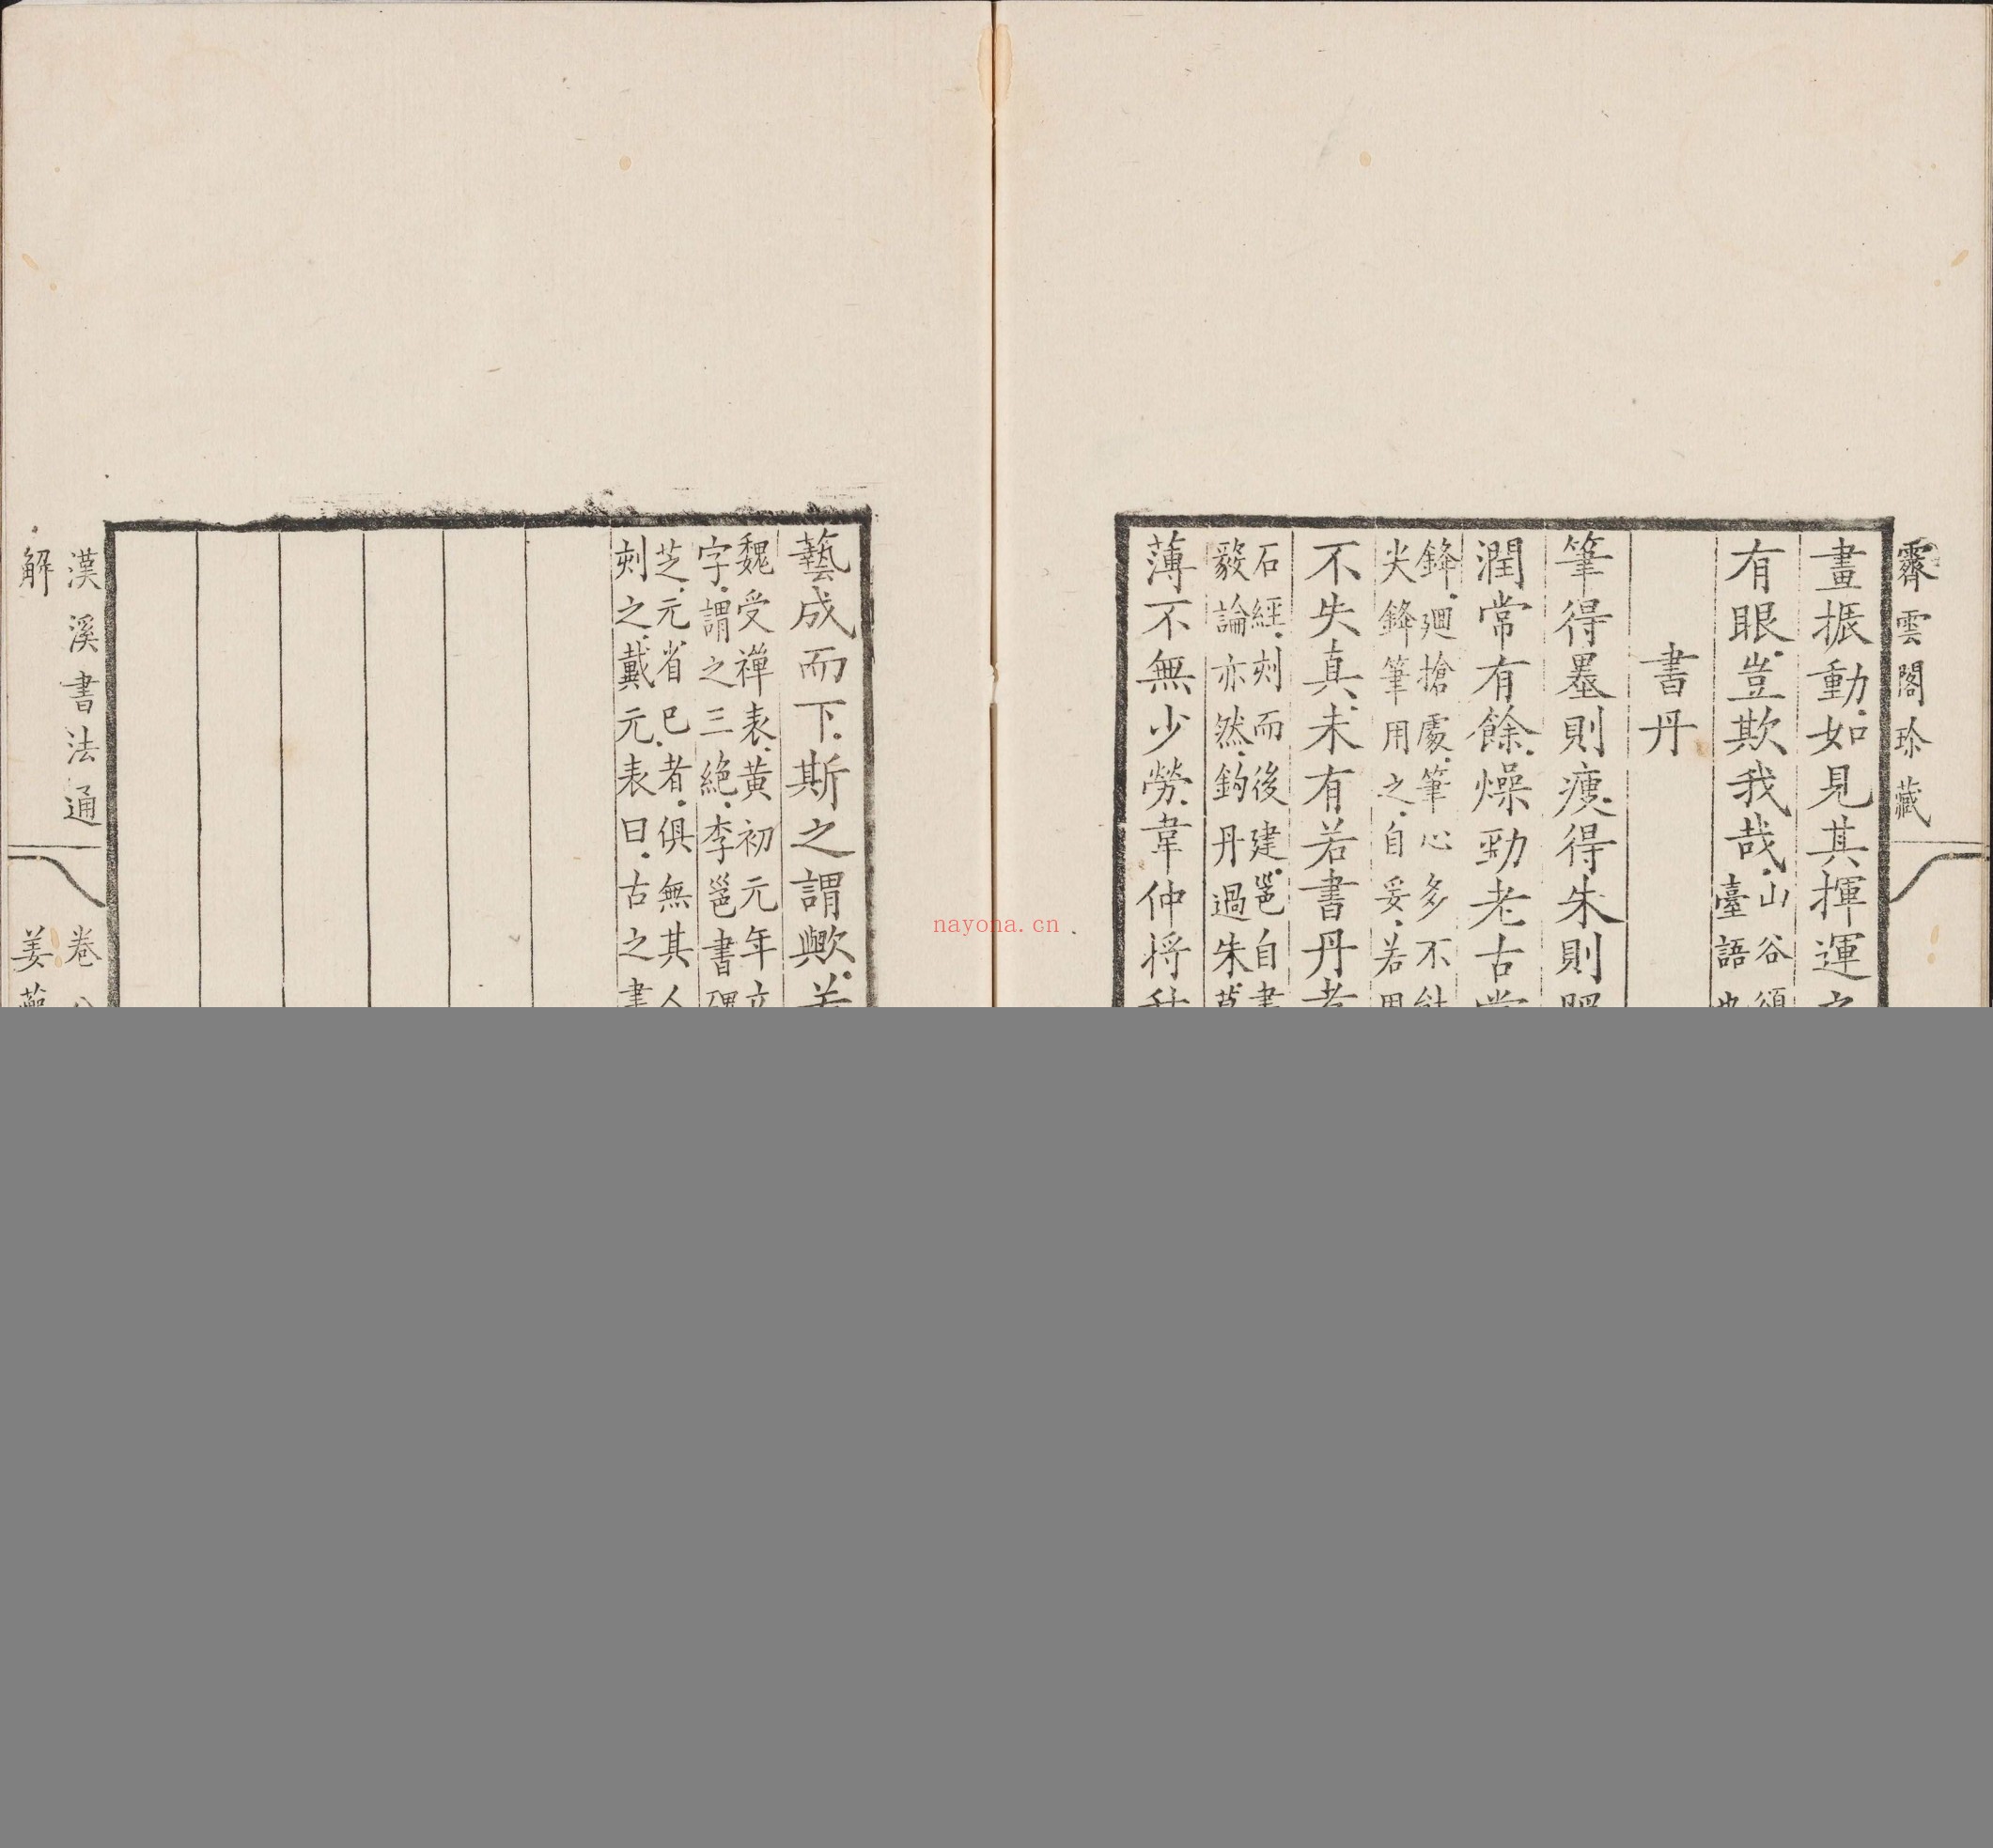 霽雲閣珍藏
畫振動如見其揮運之
有眼豈欺我哉山谷頌
臺語也
書丹
筆得墨則瘦得朱則肥
潤常有餘燥勁老古常
鋒廻搶處筆心多不能
尖鋒筆用之自妥若用
不失真未有若書丹者
石經刻而後建邕自書
毅論亦然鈎丹過朱
薄不無少勞韋仲將
藝成而下斯之謂歟
魏受禪表黃初元年立
字謂之三絕李邕書碑
芝元省已者俱無其人
刻之戴元表曰古之書
漢溪書法通
解
卷八
姜夔
nayona.cn